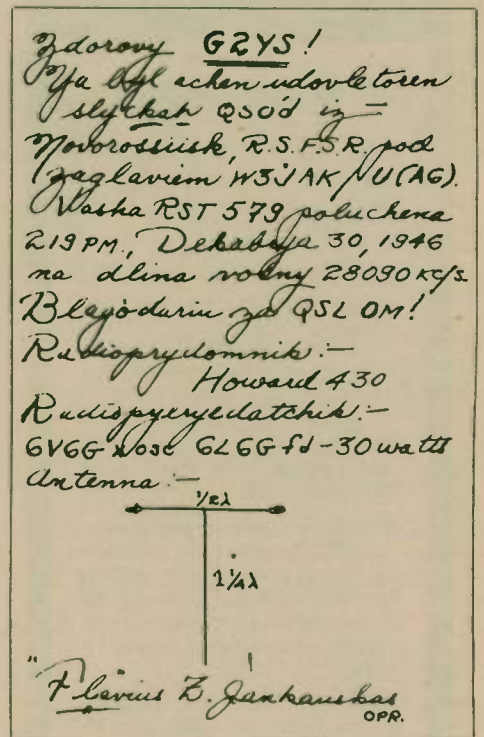 Zdorovy G2YS!
Ya byl achen udovletoren
slytkah QSO'd iz —
Novorossiisk, R.S.F.S.R. pod
zaglaviem W3JAK/U(AG).
Vasha RST 579 poluchena
219 PM., Dekabrya 30, 1946
na dlina volny 28090 KC/S.
Blagodariu za QSL OM!
Radiopryomnik:—
Howard 430
Radiopyeryedatchik:—
6V6G xosc 6L6G fd-30 watts
Antenna:—
1/2λ
1 1/4λ
"Flavius" Z. Jankauskas
OPR.